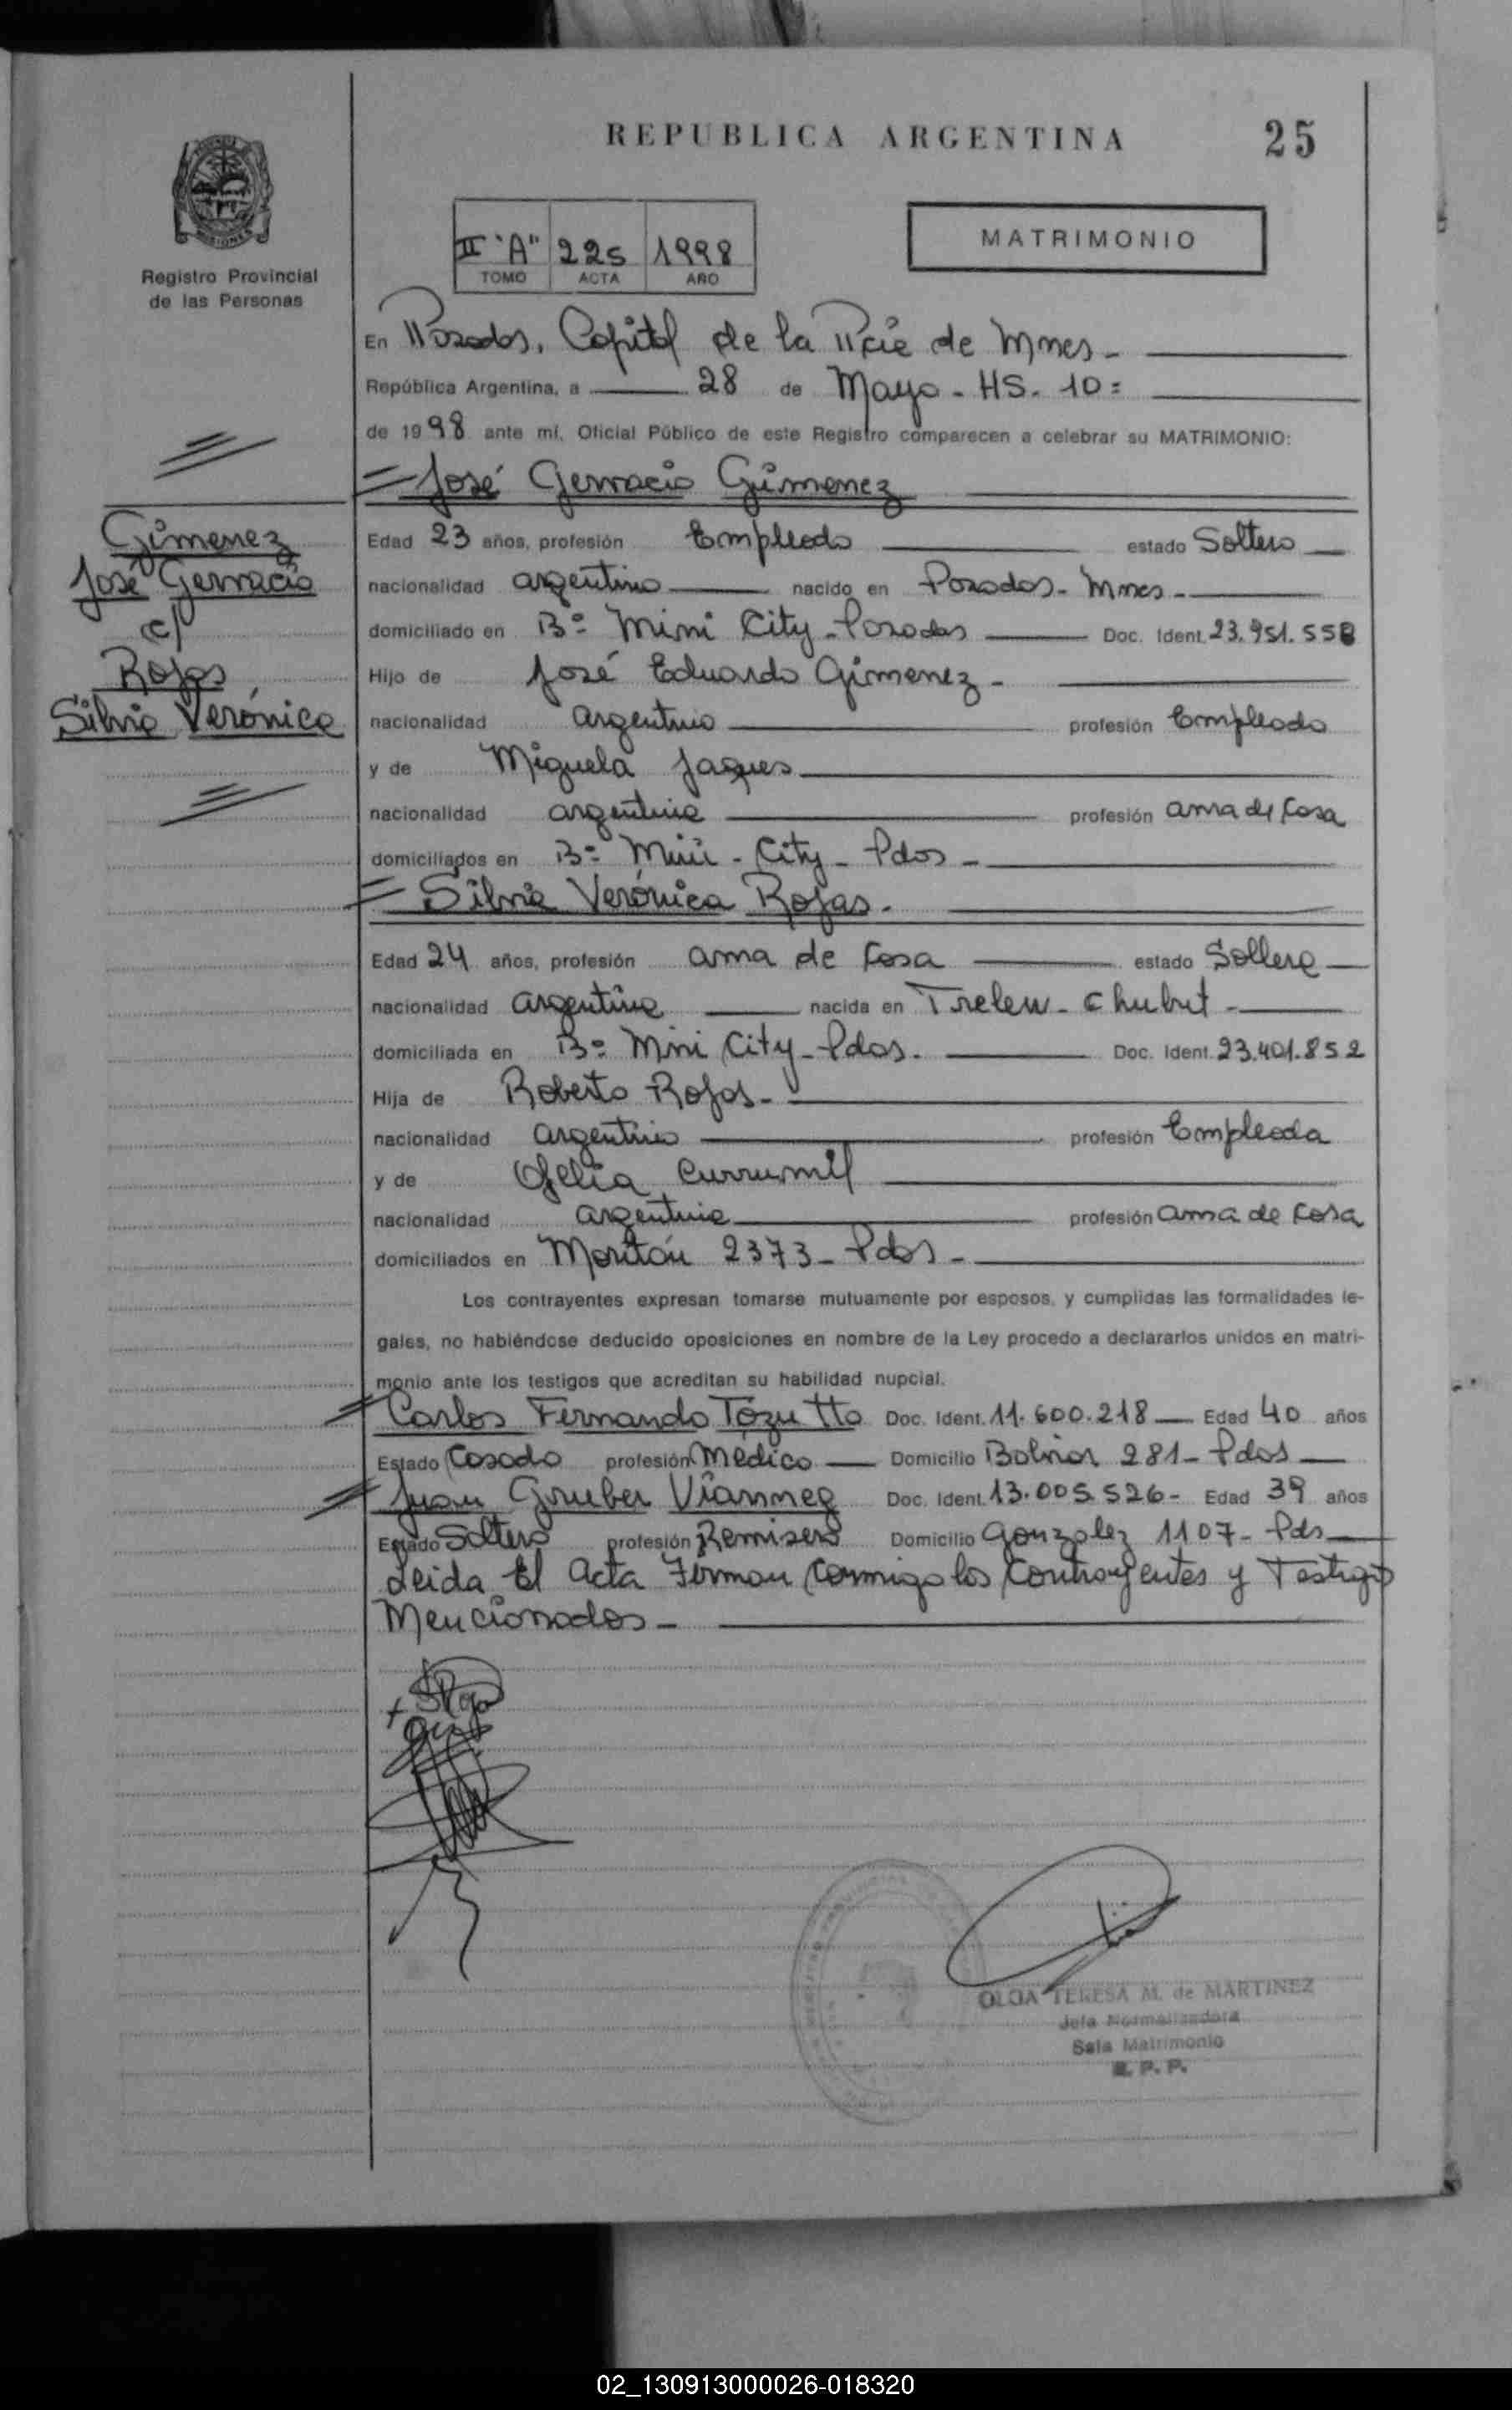 REPUBLICA ARGENTINA
25
MATRIMONIO
II "A" 225 1998
TOMO ACTA AÑO
MISIONES
Registro Provincial
de las Personas
En Posadas, Capital de la Pcie de Mnes -
República Argentina, a 28 de Mayo - HS. 10=
de 1998 ante mí, Oficial Público de este Registro comparecen a celebrar su MATRIMONIO:
José Gervacio Gimenez
Gimenez
José Gervacio
c/
Rojas
Silvia Verónica
Edad 23 años, profesión Empleado estado Soltero
nacionalidad argentino nacido en Posadas - Mnes -
domiciliado en B= Mini City - Posadas Doc. Ident. 23.951.558
Hijo de José Eduardo Gimenez -
nacionalidad argentino profesión Empleado
y de Miguela Jaques
nacionalidad argentina profesión ama de casa
domiciliados en B= Mini - City - Pdas -
Silvia Verónica Rojas -
Edad 24 años, profesión ama de casa estado Soltera
nacionalidad argentina nacida en Trelew - Chubut -
domiciliada en B= Mini City - Pdas. Doc. Ident. 23.401.852
Hija de Roberto Rojas -
nacionalidad argentino profesión Empleado
y de Ofelia Currumil
nacionalidad argentina profesión ama de casa
domiciliados en 2373 - Pdas -
Los contrayentes expresan tomarse mutuamente por esposos, y cumplidas las formalidades le-
gales, no habiéndose deducido oposiciones en nombre de la Ley procedo a declararlos unidos en matri-
monio ante los testigos que acreditan su habilidad nupcial.
Carlos Fernando Tozutto Doc. Ident. 11.600.218 Edad 40 años
Estado Casado profesión Médico Domicilio Bolívar 281 - Pdas
Juan Gruber Vianney Doc. Ident. 13.005.526 - Edad 39 años
Estado Soltero profesión Remisero Domicilio Gonzalez 1107 - Pds
Leida El Acta Firman Conmigo los Contrayentes y Testigos
Mencionados -
OLGA TERESA M. de MARTINEZ
Jefa Normalizadora
Sala Matrimonio
R. P. P.
02_130913000026-018320